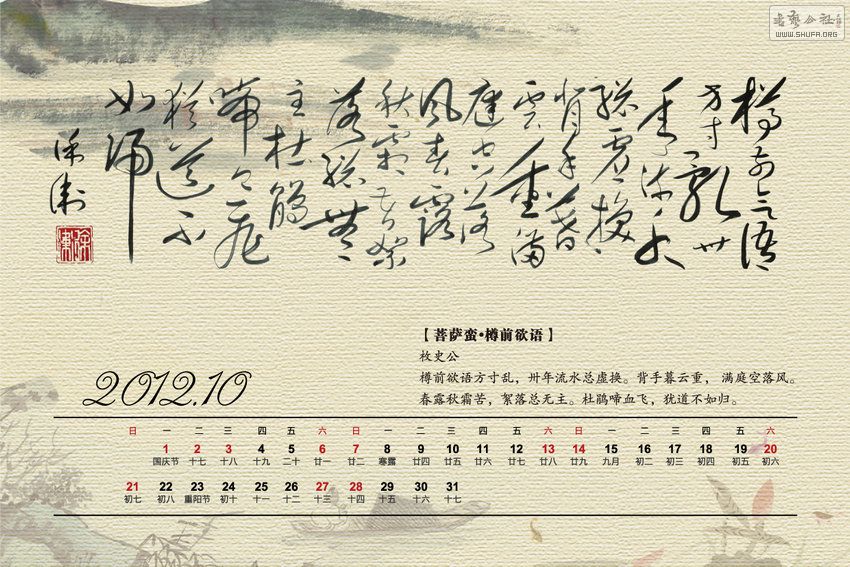 書藝公社
WWW.SHUFA.ORG
樽前欲語
方寸亂卅
年流水
總虛換
背手暮
雲重滿
庭空落
風春露
秋霜苦絮
落總無
主杜鵑
啼血飛
猶道不
如歸
【菩萨蛮•樽前欲语】
枚史公
樽前欲语方寸乱，卅年流水总虚换。背手暮云重， 满庭空落风。
春露秋霜苦，絮落总无主。杜鹃啼血飞，犹道不如归。
2012.10
日 一 二 三 四 五 六 日 一 二 三 四 五 六 日 一 二 三 四 五 六
1 2 3 4 5 6 7 8 9 10 11 12 13 14 15 16 17 18 19 20
国庆节 十七 十八 十九 二十 廿一 廿二 寒露 廿四 廿五 廿六 廿七 廿八 廿九 九月 初二 初三 初四 初五 初六
21 22 23 24 25 26 27 28 29 30 31
初七 初八 重阳节 初十 十一 十二 十三 十四 十五 十六 十七